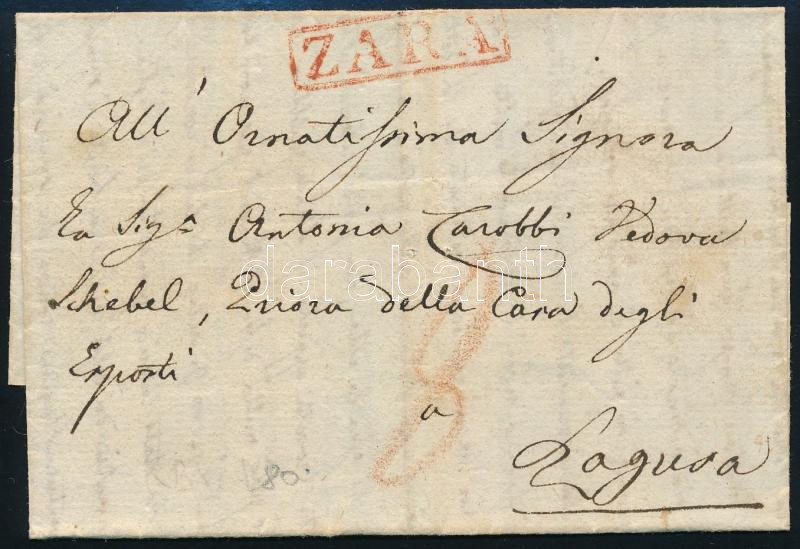 ZARA
All' Ornatissima Signora
La Sigra Antonia Carobbi Vedova
darabanth
Schebel, Priora della Casa degli
Esposti
8
a
Ragusa
180.